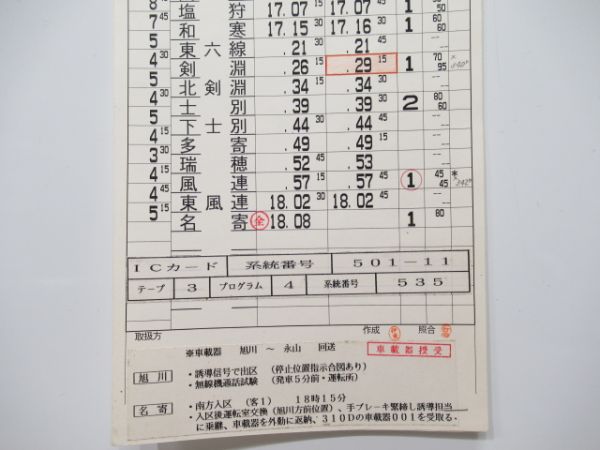 8 塩狩 17.07 15 17.07 45 1 50
7 45 和寒 17.15 30 17.16 30 1 60 60
5 東六線 .21 30 .21 45 -- --
4 30 剣淵 .26 15 .29 15 1 70 95
5 北剣淵 .34 15 .34 30 -- --
4 30 士別 .39 30 .39 30 2 80 60
5 下士別 .44 30 .44 45 -- --
4 15 多寄 .49 15 .49 15 -- --
3 30 瑞穂 .52 45 .53 -- --
4 風連 .57 15 .57 45 1 45 45
4 45 東風連 18.02 30 18.02 45 -- --
5 15 名寄 全 18.08 1 80
ICカード 系統番号 501-11
テープ 3 プログラム 4 系統番号 535
取扱方 作成 照合
※車載器 旭川 ～ 永山 回送 車載器授受
旭川 ・誘導信号で出区 （停止位置指示合図あり）
・無線機通話試験 （発車5分前・運転所）
名寄 ・南方入区 （客1） 18時15分
・入区後運転室交換（旭川方前位置）、手ブレーキ緊締し誘導担当
に乗継、車載器を外勤に返納、310Dの車載器001を受取る